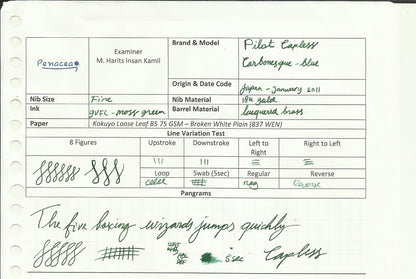 Panacea
Examiner
M. Harits Insan Kamil
Brand & Model
Pilot Capless
Carbonesque - blue
Origin & Date Code
Japan - January 2011
Nib Size
Fine
Nib Material
18k gold
Ink
gvFC - moss green
Barrel Material
lacquered brass
Paper
Kokuyo Loose Leaf B5 75 GSM – Broken White Plain (837 WEN)
Line Variation Test
8 Figures
Upstroke
Downstroke
Left to Right
Right to Left
Loop
Swab (5sec)
Regular
Reverse
Reg
Reverse
Pangrams
The five boxing wizards jumps quickly
5sec
Capless